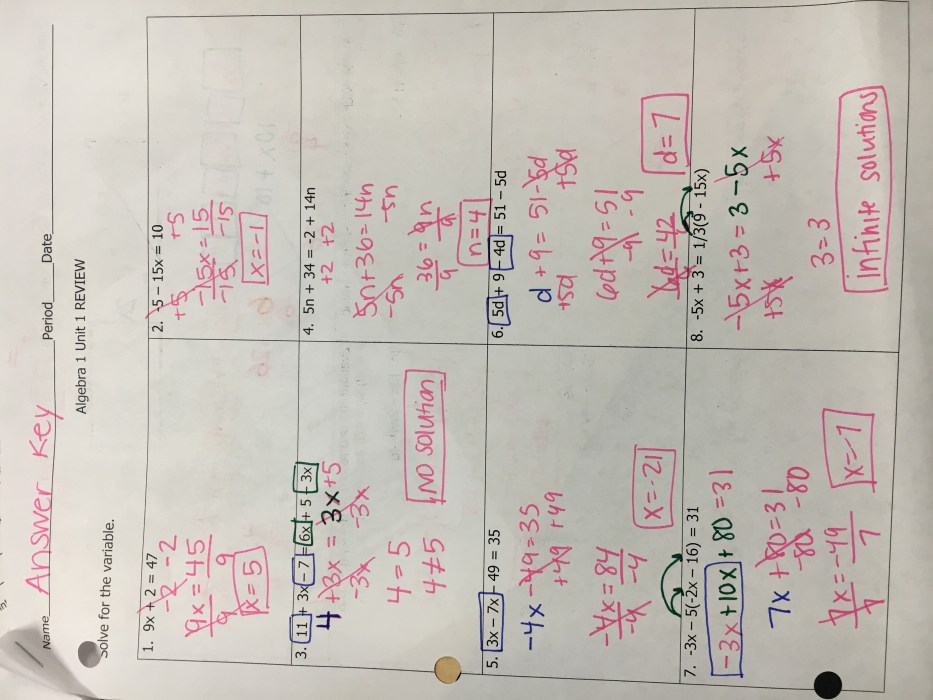 Name Answer Key Period Date
Algebra 1 Unit 1 REVIEW
Solve for the variable.
1. 9x + 2 = 47
-2 -2
9x = 45
9 9
x = 5
2. -5 – 15x = 10
+5 +5
-15x = 15
-15 -15
x = -1
3. 11 + 3x – 7 = 6x + 5 – 3x
4 + 3x = 3x + 5
-3x -3x
4 = 5
4 ≠ 5
NO Solution
4. 5n + 34 = -2 + 14n
+2 +2
5n + 36 = 14n
-5n -5n
36 = 9n
9 9
n = 4
5. 3x – 7x – 49 = 35
-4x - 49 = 35
+49 +49
-4x = 84
-4 -4
x = -21
6. 5d + 9 – 4d = 51 – 5d
d + 9 = 51 - 5d
+5d +5d
6d + 9 = 51
-9 -9
6d = 42
d = 7
7. -3x – 5(-2x – 16) = 31
-3x + 10x + 80 = 31
7x + 80 = 31
-80 -80
7x = -49
7 7
x = -7
8. -5x + 3 = 1/3(9 - 15x)
-5x + 3 = 3 - 5x
+5x +5x
3 = 3
infinite solutions